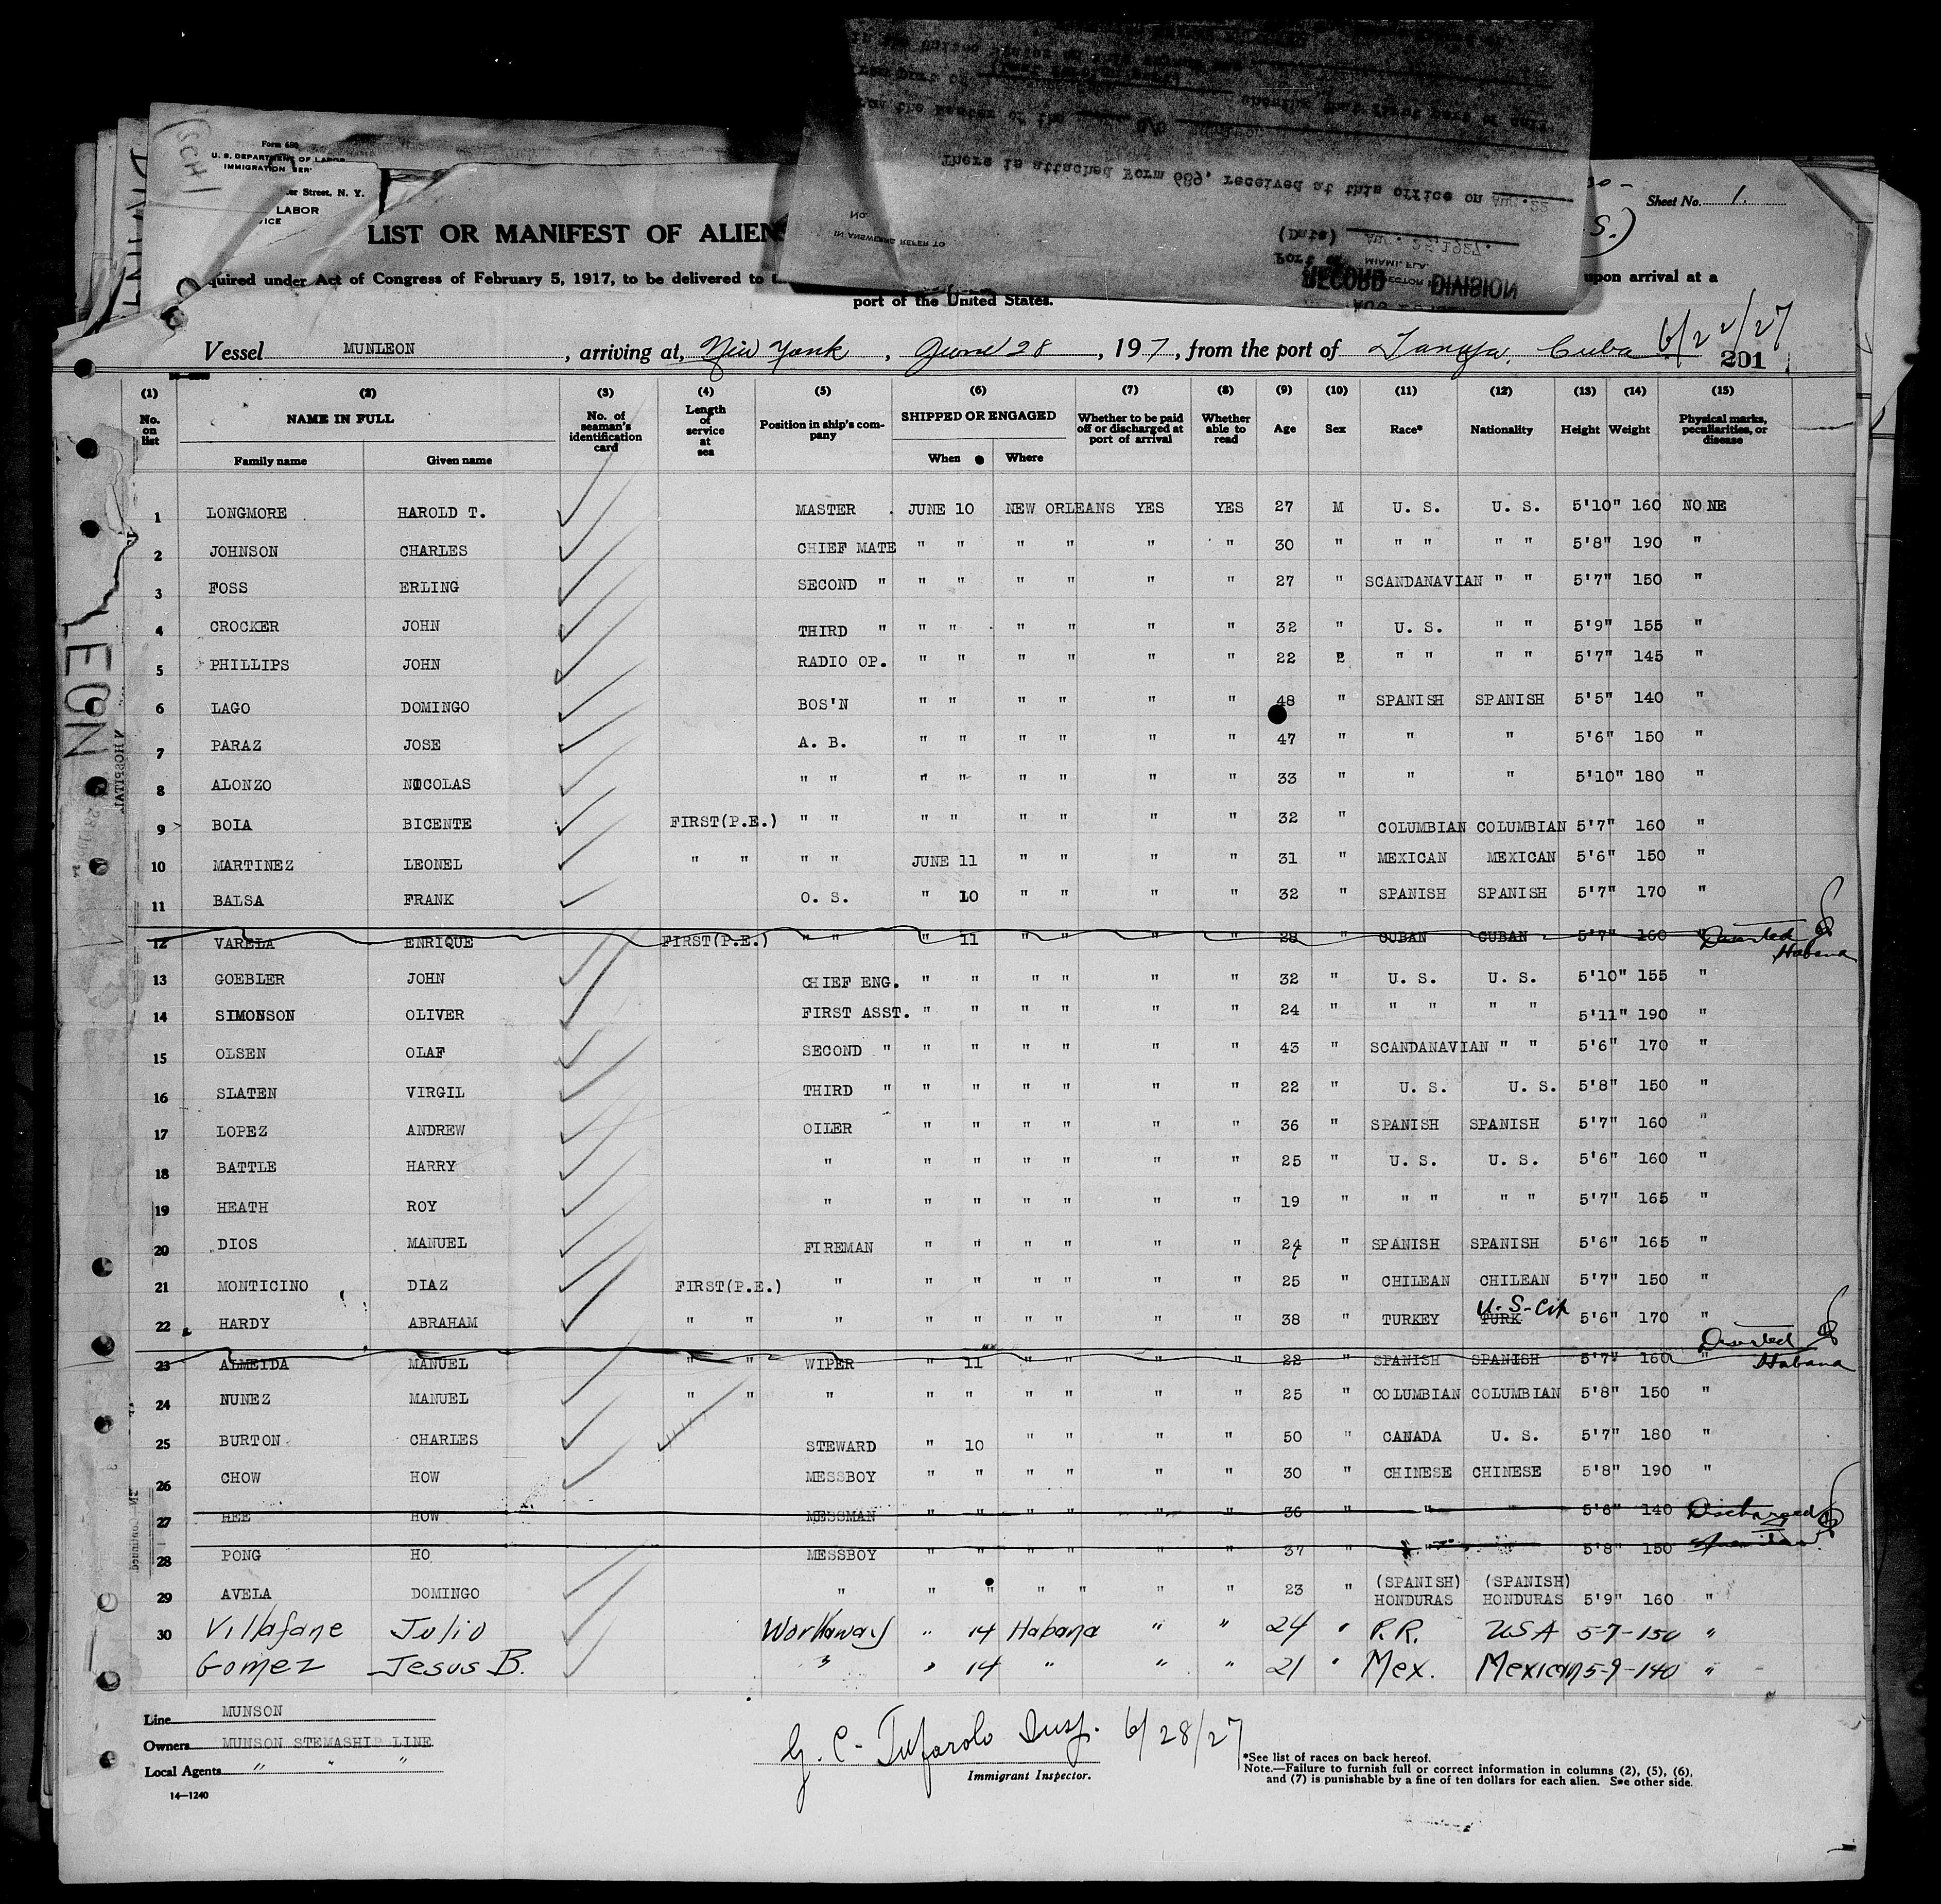 Form 680
U. S. DEPARTMENT OF LABOR
IMMIGRATION SER
Street, N. Y.
LABOR
VICE
There is attached Form 689, received at this office on Aug. 22
(Date) Aug. 22, 1927.
Port of MIAMI, FLA.
No.
IN ANSWERING REFER TO
RECORD DIVISION
Sheet No. 1.
S.)
LIST OR MANIFEST OF ALIEN
quired under Act of Congress of February 5, 1917, to be delivered to upon arrival at a
port of the United States.
Vessel MUNLEON, arriving at, New York, June 28, 197, from the port of Cuba 6/22/27
201
(1) (2) (3) (4) (5) (6) (7) (8) (9) (10) (11) (12) (13) (14) (15)
No. on list NAME IN FULL No. of seaman's identification card Length of service at sea Position in ship's company SHIPPED OR ENGAGED Whether to be paid off or discharged at port of arrival Whether able to read Age Sex Race* Nationality Height Weight Physical marks, peculiarities, or disease
Family name Given name When Where
1 LONGMORE HAROLD T. MASTER JUNE 10 NEW ORLEANS YES YES 27 M U. S. U. S. 5'10" 160 NONE
2 JOHNSON CHARLES CHIEF MATE " " " " " " 30 " " " " " 5'8" 190 "
3 FOSS ERLING SECOND " " " " " " " 27 " SCANDANAVIAN " " 5'7" 150 "
4 CROCKER JOHN THIRD " " " " " " " 32 " U. S. " " 5'9" 155 "
5 PHILLIPS JOHN RADIO OP. " " " " " " 22 " " " " " 5'7" 145 "
6 LAGO DOMINGO BOS'N " " " " " " 48 " SPANISH SPANISH 5'5" 140 "
7 PARAZ JOSE A. B. " " " " " " 47 " " " 5'6" 150 "
8 ALONZO NICOLAS " " " " " " " " 33 " " " 5'10" 180 "
9 BOIA BICENTE FIRST(P.E.) " " " " " " " " 32 " COLUMBIAN COLUMBIAN 5'7" 160 "
10 MARTINEZ LEONEL " " " " JUNE 11 " " " " 31 " MEXICAN MEXICAN 5'6" 150 "
11 BALSA FRANK O. S. " 10 " " " " 32 " SPANISH SPANISH 5'7" 170 "
12 VARELA ENRIQUE FIRST(P.E.) " " " 11 " " " " 28 " CUBAN CUBAN 5'7" 160 " Deserted Habana
13 GOEBLER JOHN CHIEF ENG. " " " " " " 32 " U. S. U. S. 5'10" 155 "
14 SIMONSON OLIVER FIRST ASST. " " " " " " 24 " " " " " 5'11" 190 "
15 OLSEN OLAF SECOND " " " " " " " 43 " SCANDANAVIAN " " 5'6" 170 "
16 SLATEN VIRGIL THIRD " " " " " " " 22 " U. S. U. S. 5'8" 150 "
17 LOPEZ ANDREW OILER " " " " " " 36 " SPANISH SPANISH 5'7" 160 "
18 BATTLE HARRY " " " " " " " 25 " U. S. U. S. 5'6" 160 "
19 HEATH ROY " " " " " " " 19 " " " " " 5'7" 165 "
20 DIOS MANUEL FIREMAN " " " " " " 24 " SPANISH SPANISH 5'6" 165 "
21 MONTICINO DIAZ FIRST(P.E.) " " " " " " " 25 " CHILEAN CHILEAN 5'7" 150 "
22 HARDY ABRAHAM " " " " " " " " " 38 " TURKEY TURK U.S. Cit 5'6" 170 "
23 ALMEIDA MANUEL " " WIPER " 11 " " " " 22 " SPANISH SPANISH 5'7" 160 " Deserted Habana
24 NUNEZ MANUEL " " " " " " " " " 25 " COLUMBIAN COLUMBIAN 5'8" 150 "
25 BURTON CHARLES STEWARD " 10 " " " " 50 " CANADA U. S. 5'7" 180 "
26 CHOW HOW MESSBOY " " " " " " 30 " CHINESE CHINESE 5'8" 190 "
27 HEE HOW MESSMAN " " " " " " 36 " " " 5'6" 140 Discharged
28 PONG HO MESSBOY " " " " " " 37 " " " 5'8" 150
29 AVELA DOMINGO " " " " " " " 23 " (SPANISH) HONDURAS (SPANISH) HONDURAS 5'9" 160 "
30 Villafane Julio Workaway " 14 Habana " " 24 " P.R. USA 5-7-150 "
Gomez Jesus B. " " 14 " " " 21 " Mex. Mexican 5-9-140 "
Line MUNSON
Owners MUNSON STEMASHIP LINE
Local Agents " " "
14—1240
G. C. Tufarolo Insp. 6/28/27
Immigrant Inspector.
*See list of races on back hereof.
Note.—Failure to furnish full or correct information in columns (2), (5), (6),
and (7) is punishable by a fine of ten dollars for each alien. See other side.
LEON